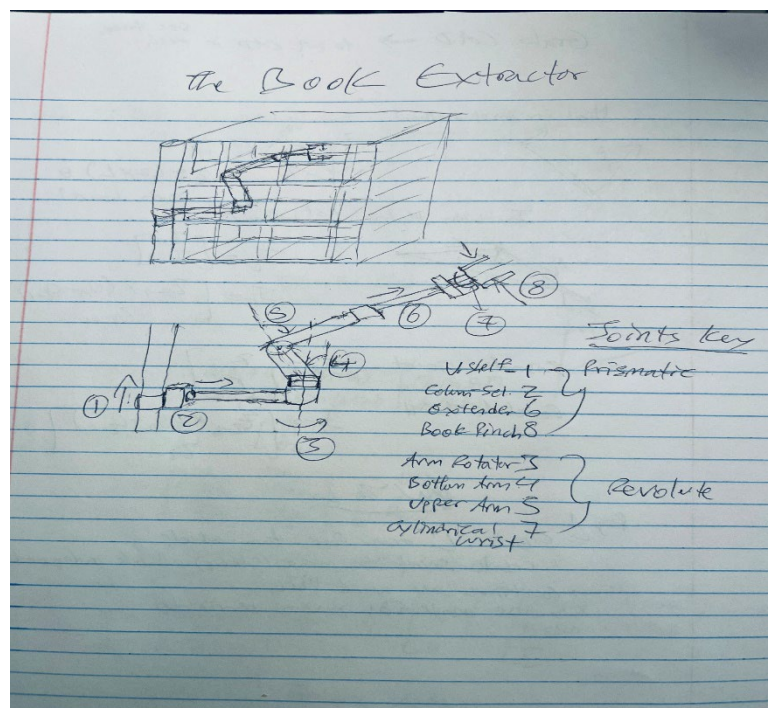 The Book Extractor
8
5
6
7
4
1
2
3
Joints Key
1
Column Sel. 2
Extender 6
Book Pinch 8
Prismatic
Arm Rotator 3
Bottom Arm 4
Upper Arm 5
Cylindrical 7
wrist
Revolute